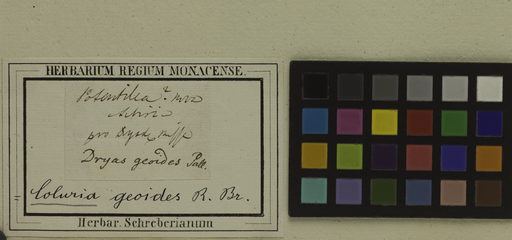 HERBARIUM REGIUM MONACENSE.
Potentilla? nova
pro
Dryas geoides Pall.
= Coluria geoides R. Br.
Herbar. Schreberianum